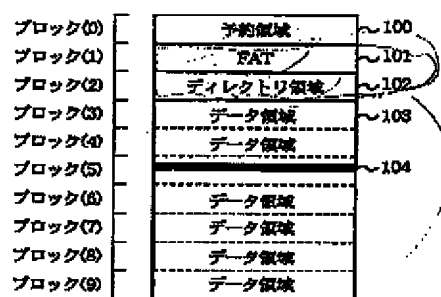 ブロック(0) 予約領域 100
ブロック(1) FAT 101
ブロック(2) ディレクトリ領域 102
ブロック(3) データ領域 103
ブロック(4) データ領域
ブロック(5) 104
ブロック(6) データ領域
ブロック(7) データ領域
ブロック(8) データ領域
ブロック(9) データ領域